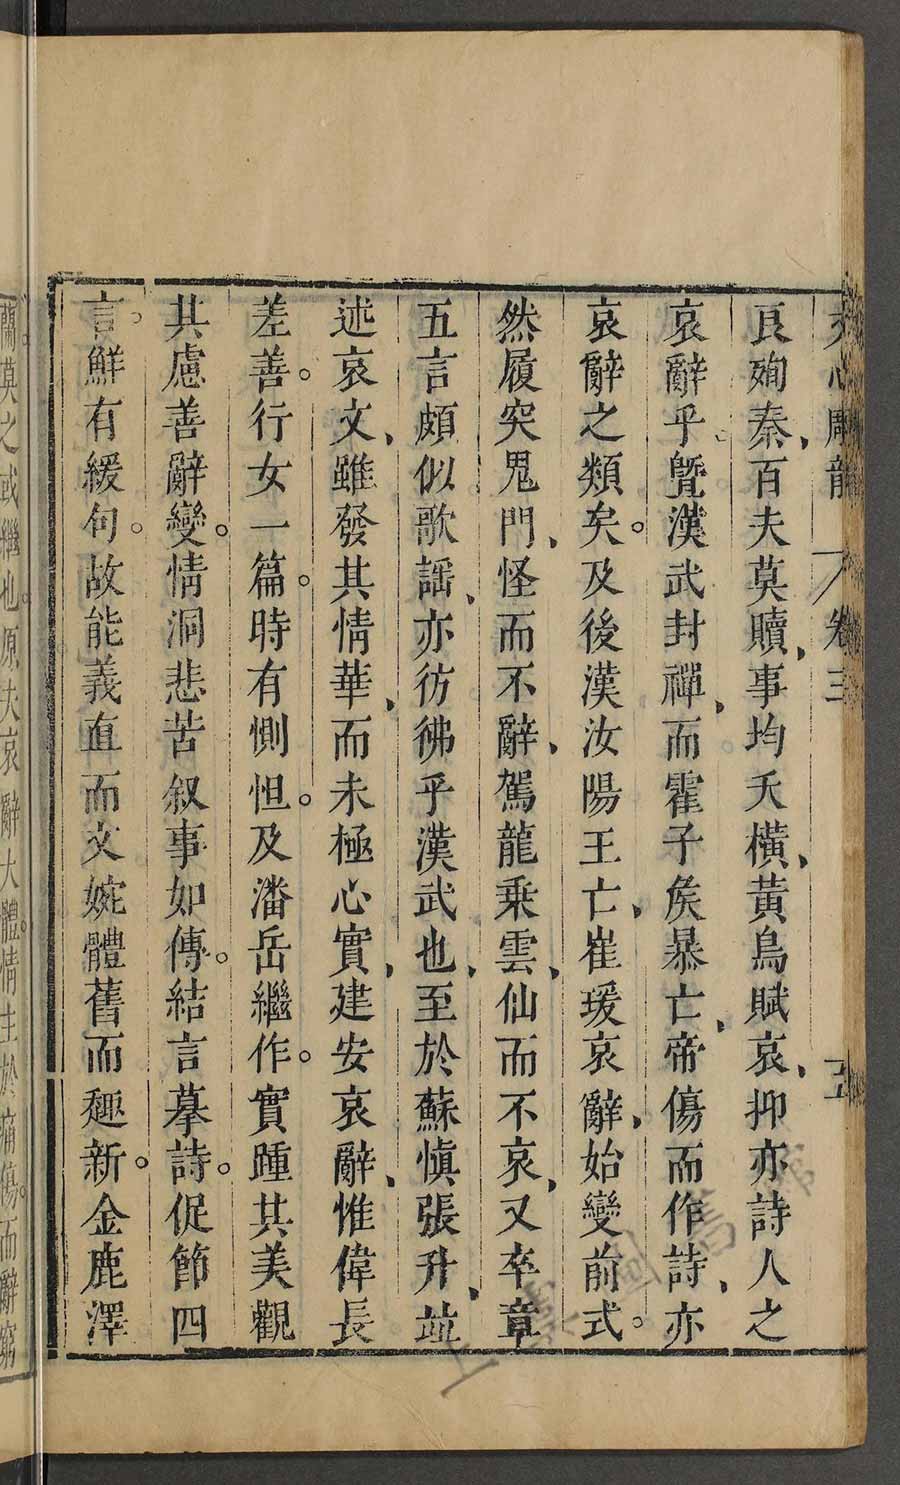 文心雕龍 卷三 五
良殉秦、百夫莫贖、事均夭横、黃鳥賦哀、抑亦詩人之
哀辭乎。曁漢武封禪、而霍子矦暴亡、帝傷而作詩、亦
哀辭之類矣。及後漢汝陽王亡、崔瑗哀辭、始變前式。
然履突鬼門、怪而不辭、駕龍乘雲、仙而不哀、又卒章
五言頗似歌謡、亦彷彿乎漢武也、至於蘇愼張升、竝
述哀文、雖發其情華、而未極心實、建安哀辭、惟偉長
差善。行女一篇。時有惻怛。及潘岳繼作。實踵其美觀
其慮善辭變。情洞悲苦叙事如傳。結言摹詩。促節四
言。鮮有緩句。故能義直而文婉體舊而趣新。金鹿澤
蘭莫之或繼也。原夫哀辭大體。情主於痛傷。而辭窮